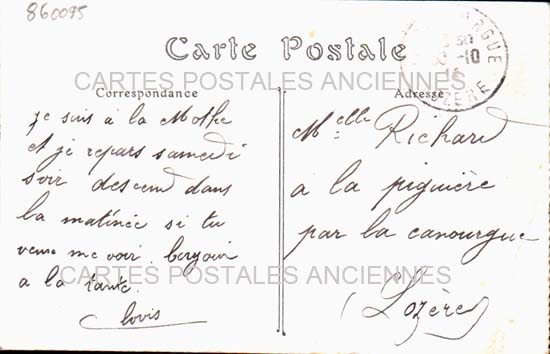 860095
Carte Postale
ARGUE
30
-10
16
OZÈRE
CARTES POSTALES ANCIENNES
Correspondance
Adresse
je suis à la Mothe
et je repars samedi
soir descend dans
la matinée si tu
veux me voir. bonjour
a la tante.
Louis
Melle Richard
à la piguière
par la canourgue
(Lozère)
CARTES POSTALES ANCIENNES